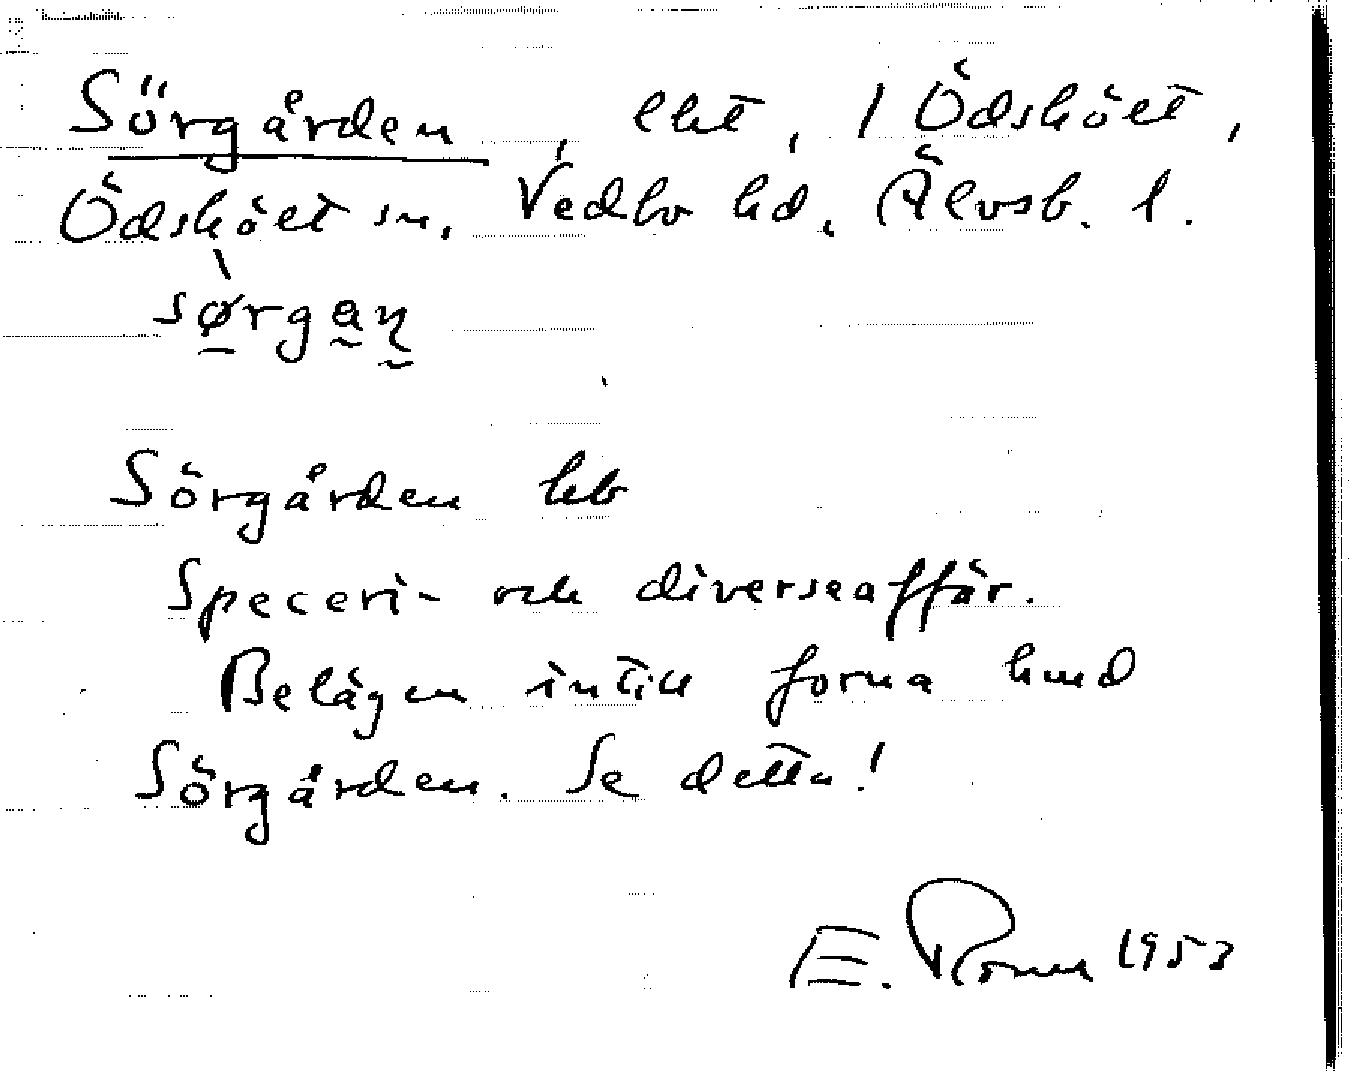 Sörgården, lht, 1 Ödskölt,
Ödskölt sn, Vedbo hd, Älvsb. l.
Sörgården
Speceri- och diverseaffär.
Belägen intill forna hmd
Sörgården. Se detta!
E. 1953